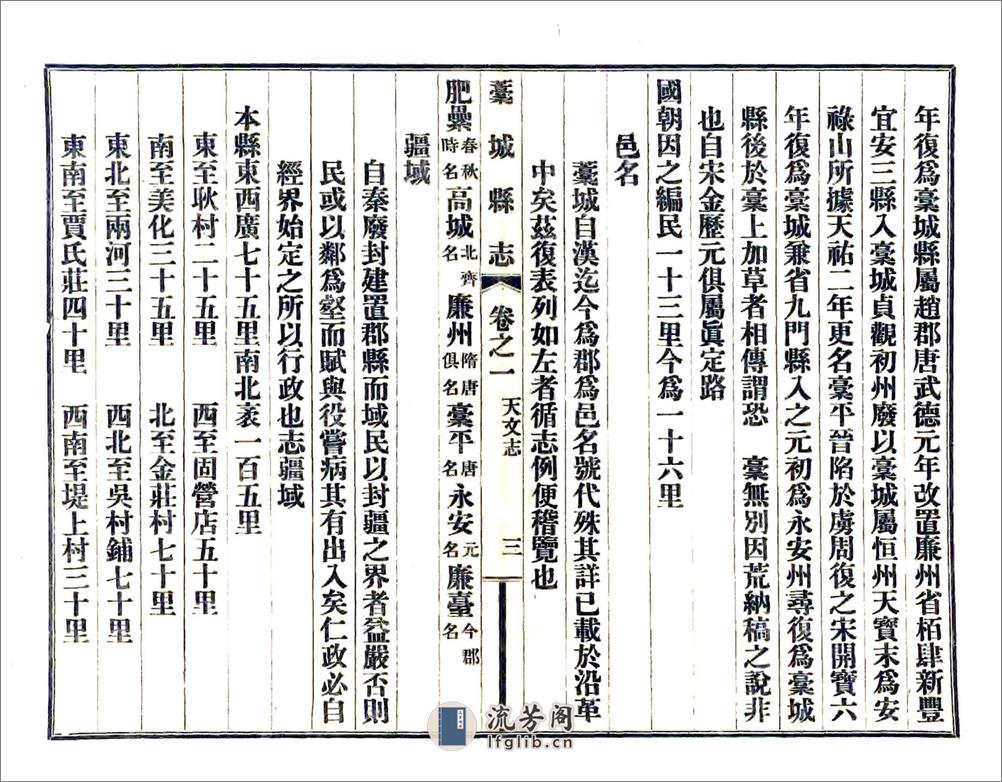 年復爲臺城縣屬趙郡唐武德元年改置廉州省栢肆新豐
宜安三縣入臺城貞觀初州廢以臺城屬恒州天寶末爲安
祿山所據天祐二年更名臺平晉陷於虜周復之宋開寶六
年復爲臺城兼省九門縣入之元初爲永安州尋復爲臺城
縣後於臺上加草者相傳謂恐 臺無別因荒納稿之說非
也自宋金歷元俱屬眞定路
國朝因之編民一十三里今爲一十六里
邑名
藁城自漢迄今爲郡爲邑名號代殊其詳已載於沿革
中矣茲復表列如左者循志例便稽覽也
藁城縣志 卷之一 天文志 三
肥纍春秋時名高城北齊名廉州隋唐俱名臺平唐名永安元名廉臺今郡名
疆域
自秦廢封建置郡縣而域民以封疆之界者益嚴否則
民或以鄰爲壑而賦與役嘗病其有出入矣仁政必自
經界始定之所以行政也志疆域
本縣東西廣七十五里南北袤一百五里
東至耿村二十五里 西至固營店五十里
南至美化三十五里 北至金莊村七十里
東北至兩河三十里 西北至吳村鋪七十里
東南至賈氏莊四十里 西南至堤上村三十里
流芳阁
lfglib.cn